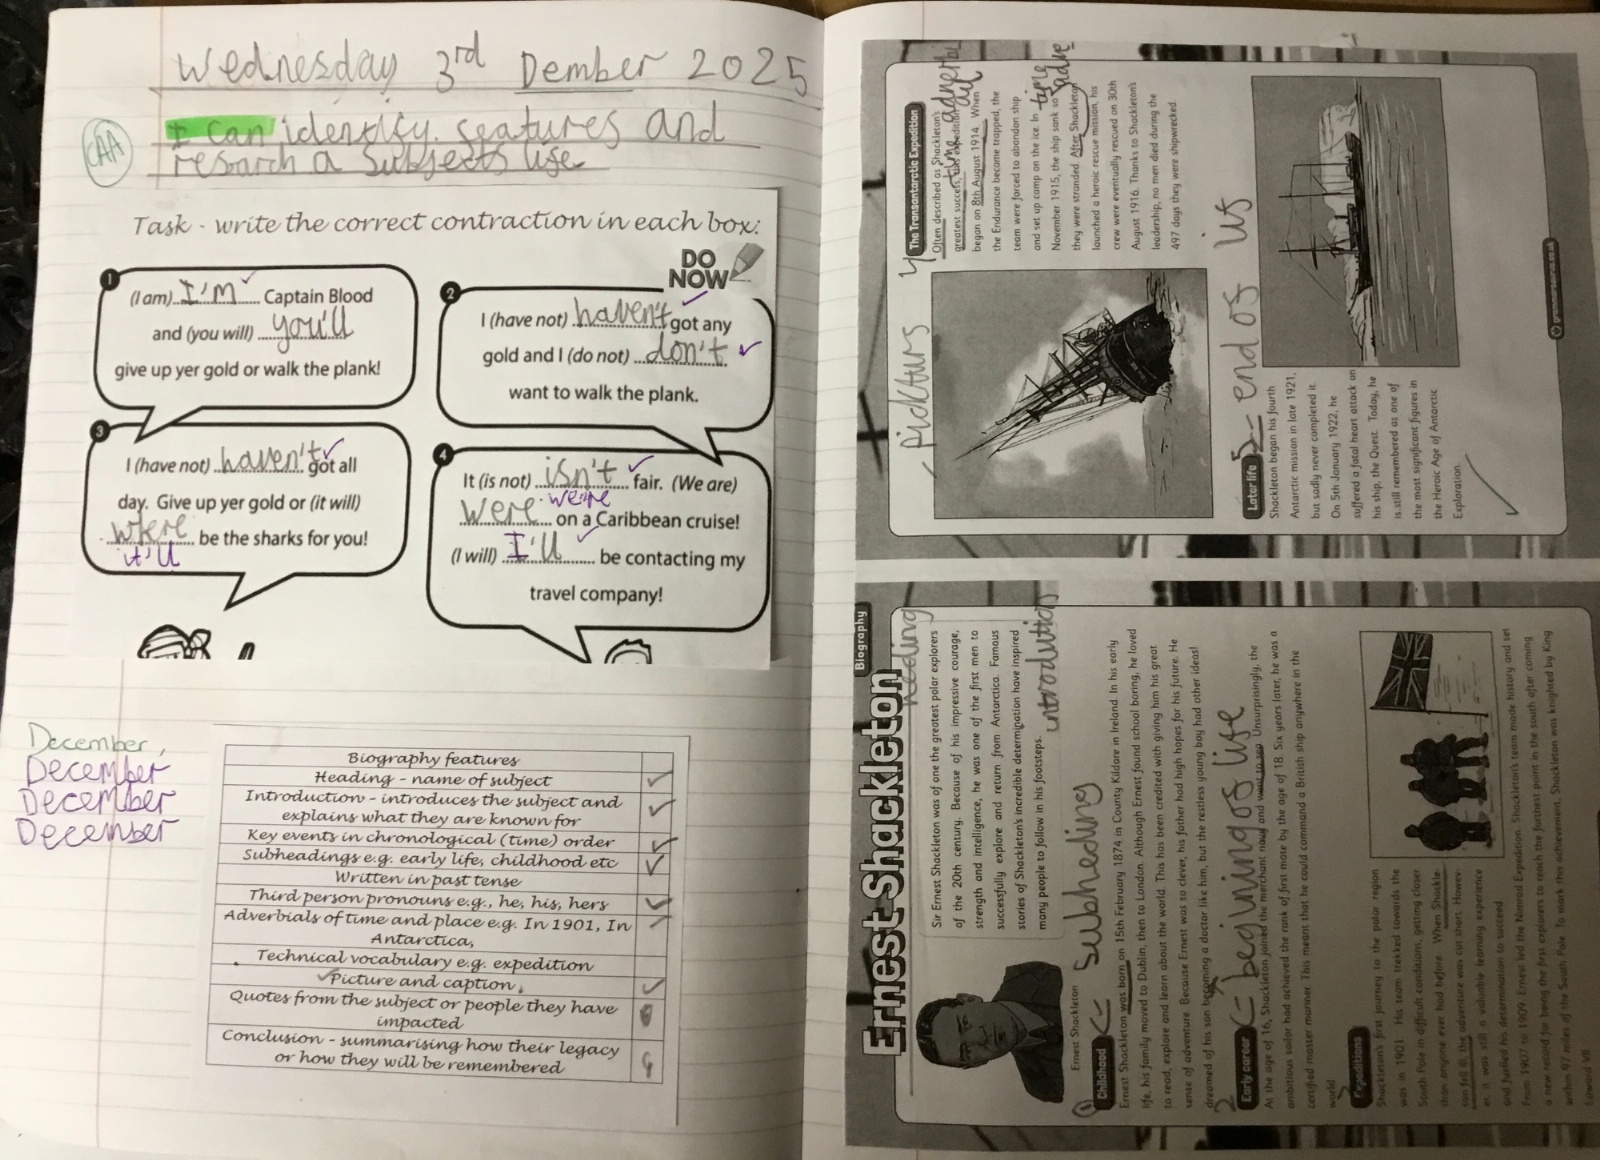 Wednesday 3rd Dember 2025
CAA
I can identify features and
research a Subjects life
Task - write the correct contraction in each box:
DO
NOW
1
(I am) I'm Captain Blood
and (you will) you'll
give up yer gold or walk the plank!
2
I (have not) haven't got any
gold and I (do not) don't
want to walk the plank.
3
I (have not) haven't got all
day. Give up yer gold or (it will)
where be the sharks for you!
it'll
4
It (is not) isn't fair. (We are)
we're
were on a Caribbean cruise!
(I will) I'll be contacting my
travel company!
December,
December
December
December
Biography features
Heading - name of subject
Introduction - introduces the subject and
explains what they are known for
Key events in chronological (time) order
Subheadings e.g. early life, childhood etc
Written in past tense
Third person pronouns e.g., he, his, hers
Adverbials of time and place e.g. In 1901, In
Antarctica,
Technical vocabulary e.g. expedition
Picture and caption
Quotes from the subject or people they have
impacted
Conclusion - summarising how their legacy
or how they will be remembered
Biography
Ernest Shackleton
heding
Sir Ernest Shackleton was of one the greatest polar explorers
of the 20th century. Because of his impressive courage,
strength and intelligence, he was one of the first men to
successfully explore and return from Antarctica. Famous
stories of Shackleton's incredible determination have inspired
many people to follow in his footsteps.
introdution
Ernest Shackleton
Subheding
1
Childhood
Ernest Shackleton was born on 15th February 1874 in County Kildare in Ireland. In his early
life, his family moved to Dublin, then to London. Although Ernest found school boring, he loved
to read, explore and learn about the world. This has been credited with giving him his great
sense of adventure. Because Ernest was so clever, his father had high hopes for his future. He
dreamed of his son becoming a doctor like him, but the restless young boy had other ideas!
2
Early career
beginingof life
At the age of 16, Shackleton joined the merchant navy and went to sea. Unsurprisingly, the
ambitious sailor had achieved the rank of first mate by the age of 18. Six years later, he was a
certified master mariner. This meant that he could command a British ship anywhere in the
world
Expeditions
Shackleton's first journey to the polar region
was in 1901. His team trekked towards the
South Pole in difficult conditions, getting closer
than anyone ever had before. When Shackle-
ton fell ill, the adventure was cut short. Howev-
er, it was still a valuable learning experience
and fuelled his determination to succeed
From 1907 to 1909, Ernest led the Nimrod Expedition. Shackleton's team made history and set
a new record for being the first explorers to reach the furthest point in the south after coming
within 97 miles of the South Pole. To mark this achievement, Shackleton was knighted by King
Edward VII
4
The Transantarctic Expedition
Often described as Shackleton's
greatest success, this expedition
began on 8th August 1914. When
the Endurance became trapped, the
team were forced to abandon ship
and set up camp on the ice. In
November 1915, the ship sank so
they were stranded. After Shackleton
launched a heroic rescue mission, his
crew were eventually rescued on 30th
August 1916. Thanks to Shackleton's
leadership, no men died during the
497 days they were shipwrecked.
time
time
pickturs
5
Later life
end of lif
Shackleton began his fourth
Antarctic mission in late 1921,
but sadly never completed it.
On 5th January 1922, he
suffered a fatal heart attack on
his ship, the Quest. Today, he
is still remembered as one of
the most significant figures in
the Heroic Age of Antarctic
Exploration.